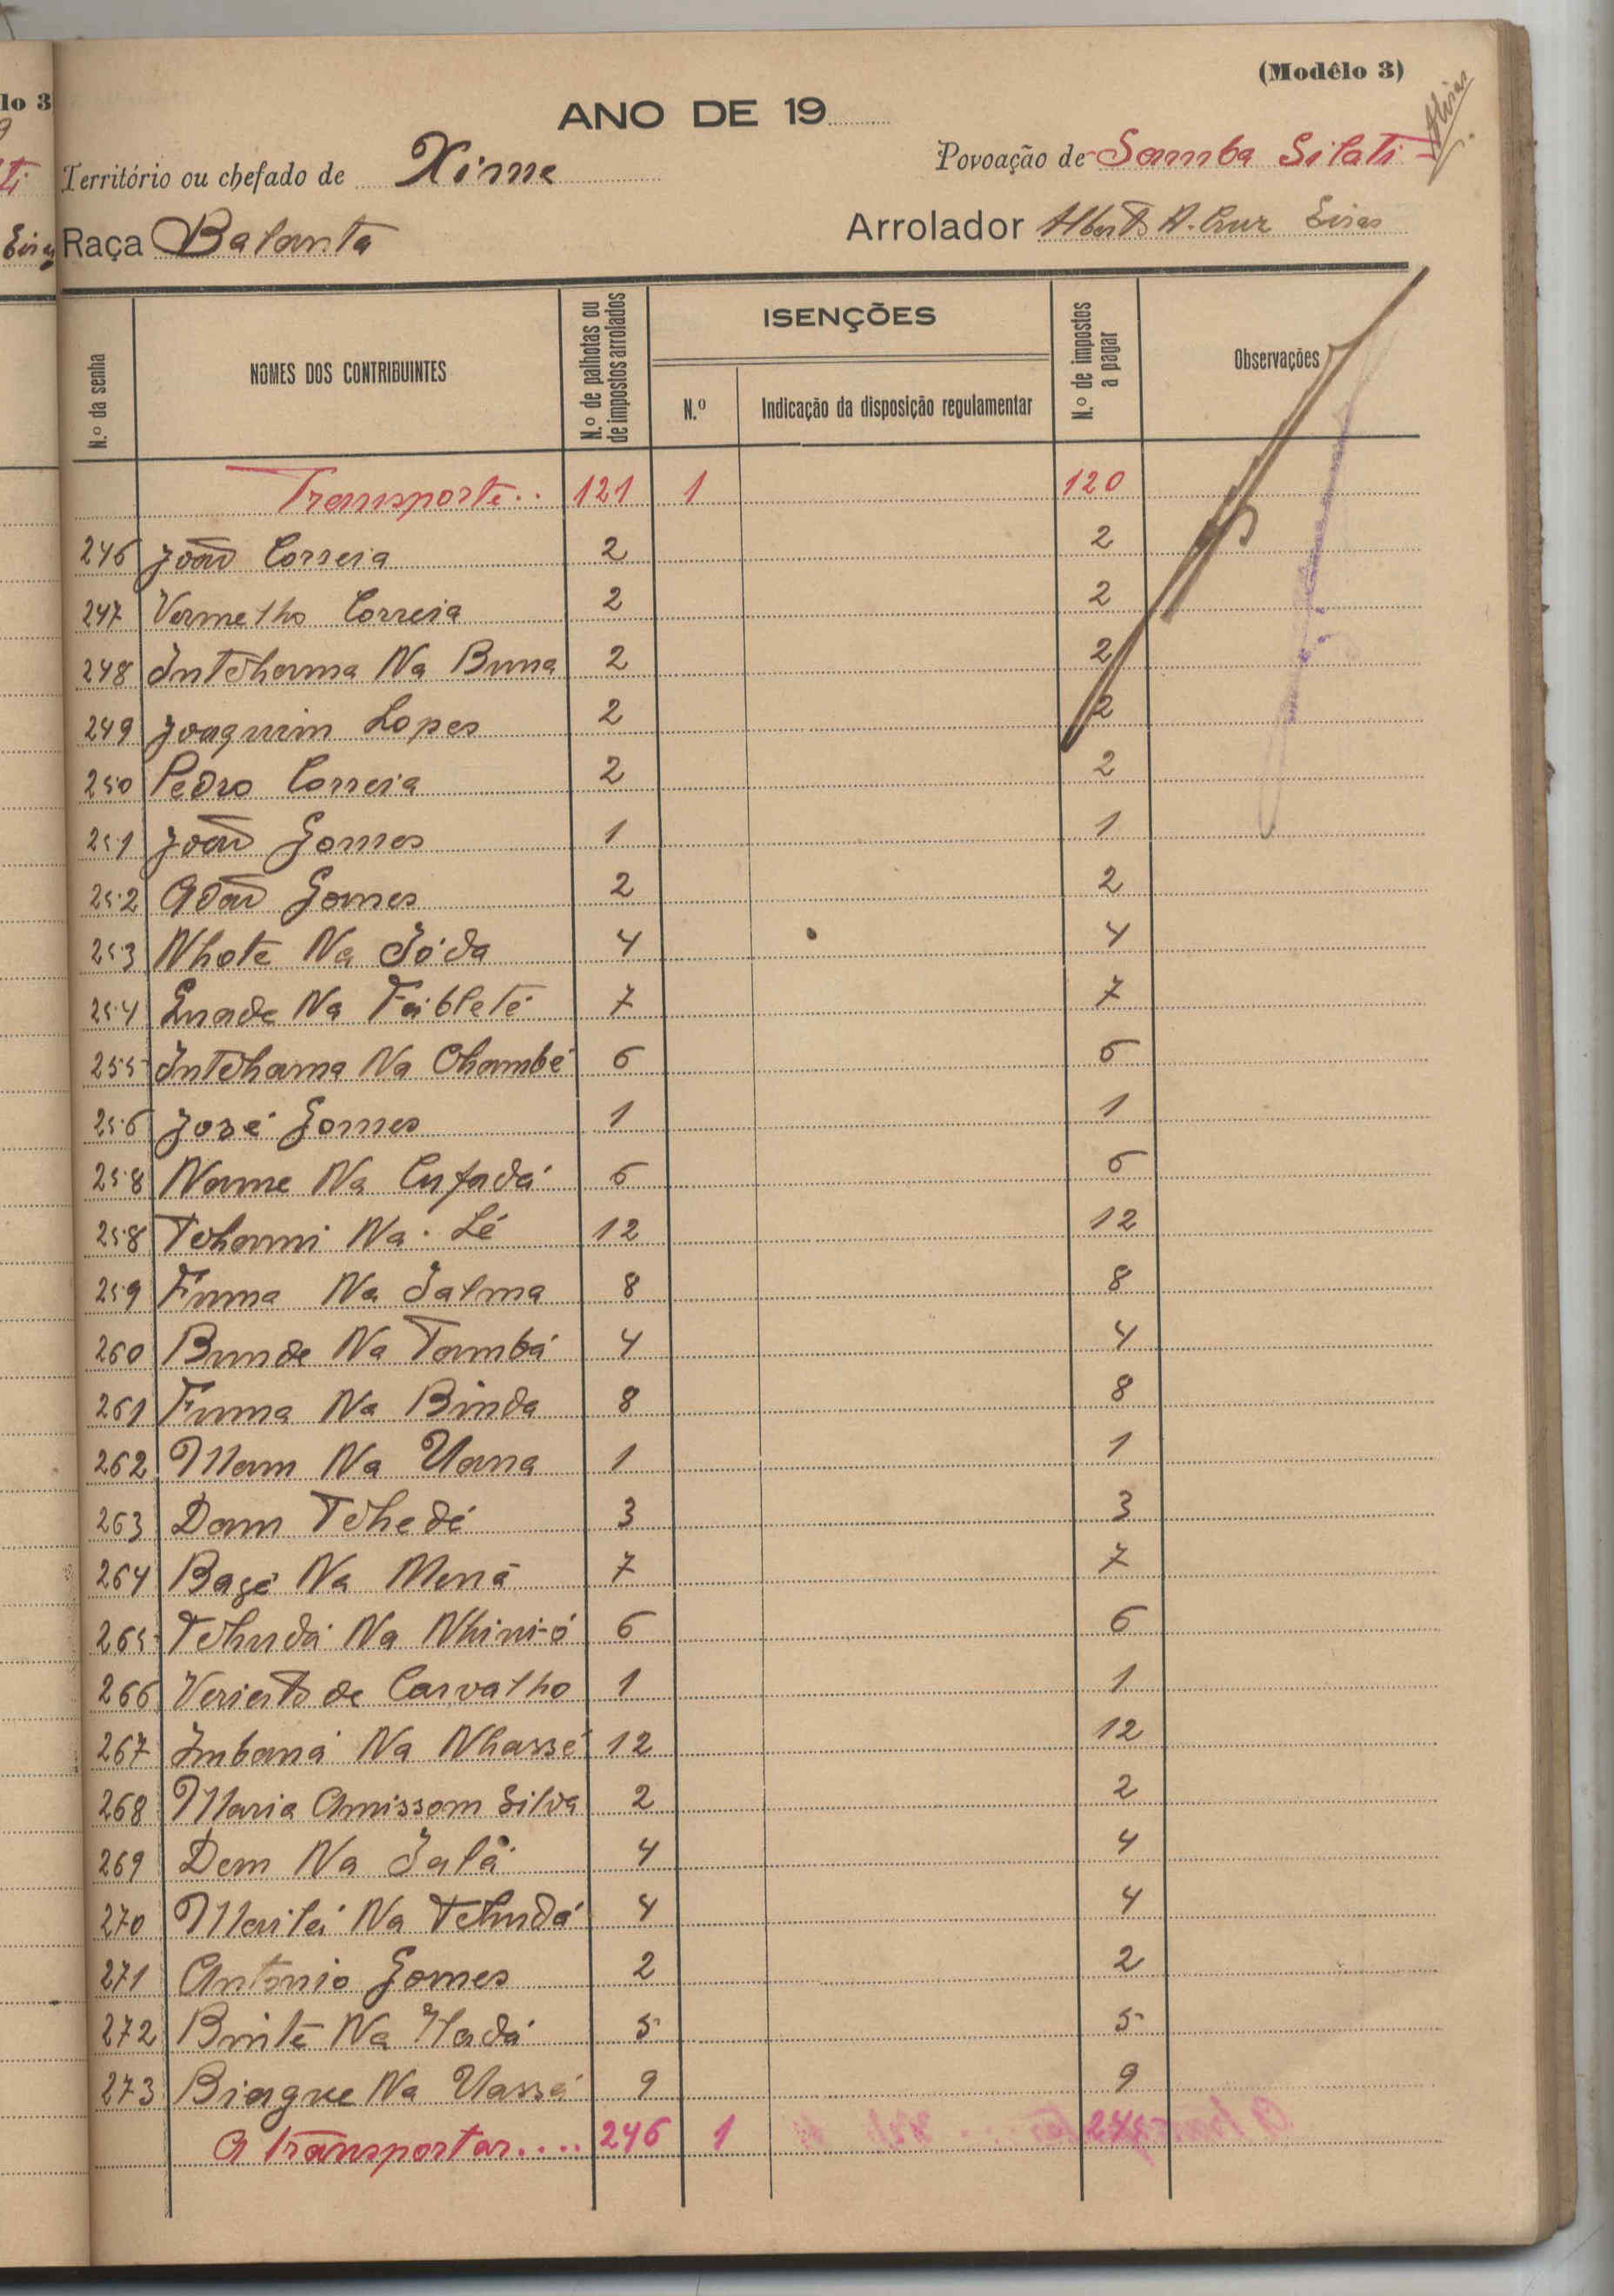 (Modêlo 3)
ANO DE 19
Território ou chefado de Xime
Povoação de Samba Silati
Raça Balanta
Arrolador Alberto A. Cruz Eiras
N.º da senha
NOMES DOS CONTRIBUINTES
N.º de palhotas ou de impostos arrolados
ISENÇÕES
N.º
Indicação da disposição regulamentar
N.º de impostos a pagar
Observações
Transporte.. 121 1 120
246 João Correia 2 2
247 Vermelho Correia 2 2
248 Intchama Na Buna 2 2
249 Joaquim Lopes 2 2
250 Pedro Correia 2 2
251 João Gomes 1 1
252 Adão Gomes 2 2
253 Nhote Na Jóda 4 4
254 Na 7 7
255 Intchama Na Chambé 6 6
256 José Gomes 1 1
258 Name Na Cufadá 6 6
258 Tchami Na Lé 12 12
259 Fuma Na Jalma 8 8
260 Bunde Na Tambá 4 4
261 Fuma Na Binda 8 8
262 Mam Na Uana 1 1
263 Dam Tchedé 3 3
264 Na Mená 7 7
265 Tchudá Na Nhini-ó 6 6
266 de Carvalho 1 1
267 Imbaná Na Nhassé 12 12
268 Maria Amissom Silva 2 2
269 Dem Na Jalá 4 4
270 Na Tchudá 4 4
271 Antonio Gomes 2 2
272 Na 5 5
273 Biague Na Uassé 9 9
A transportar.... 246 1 245